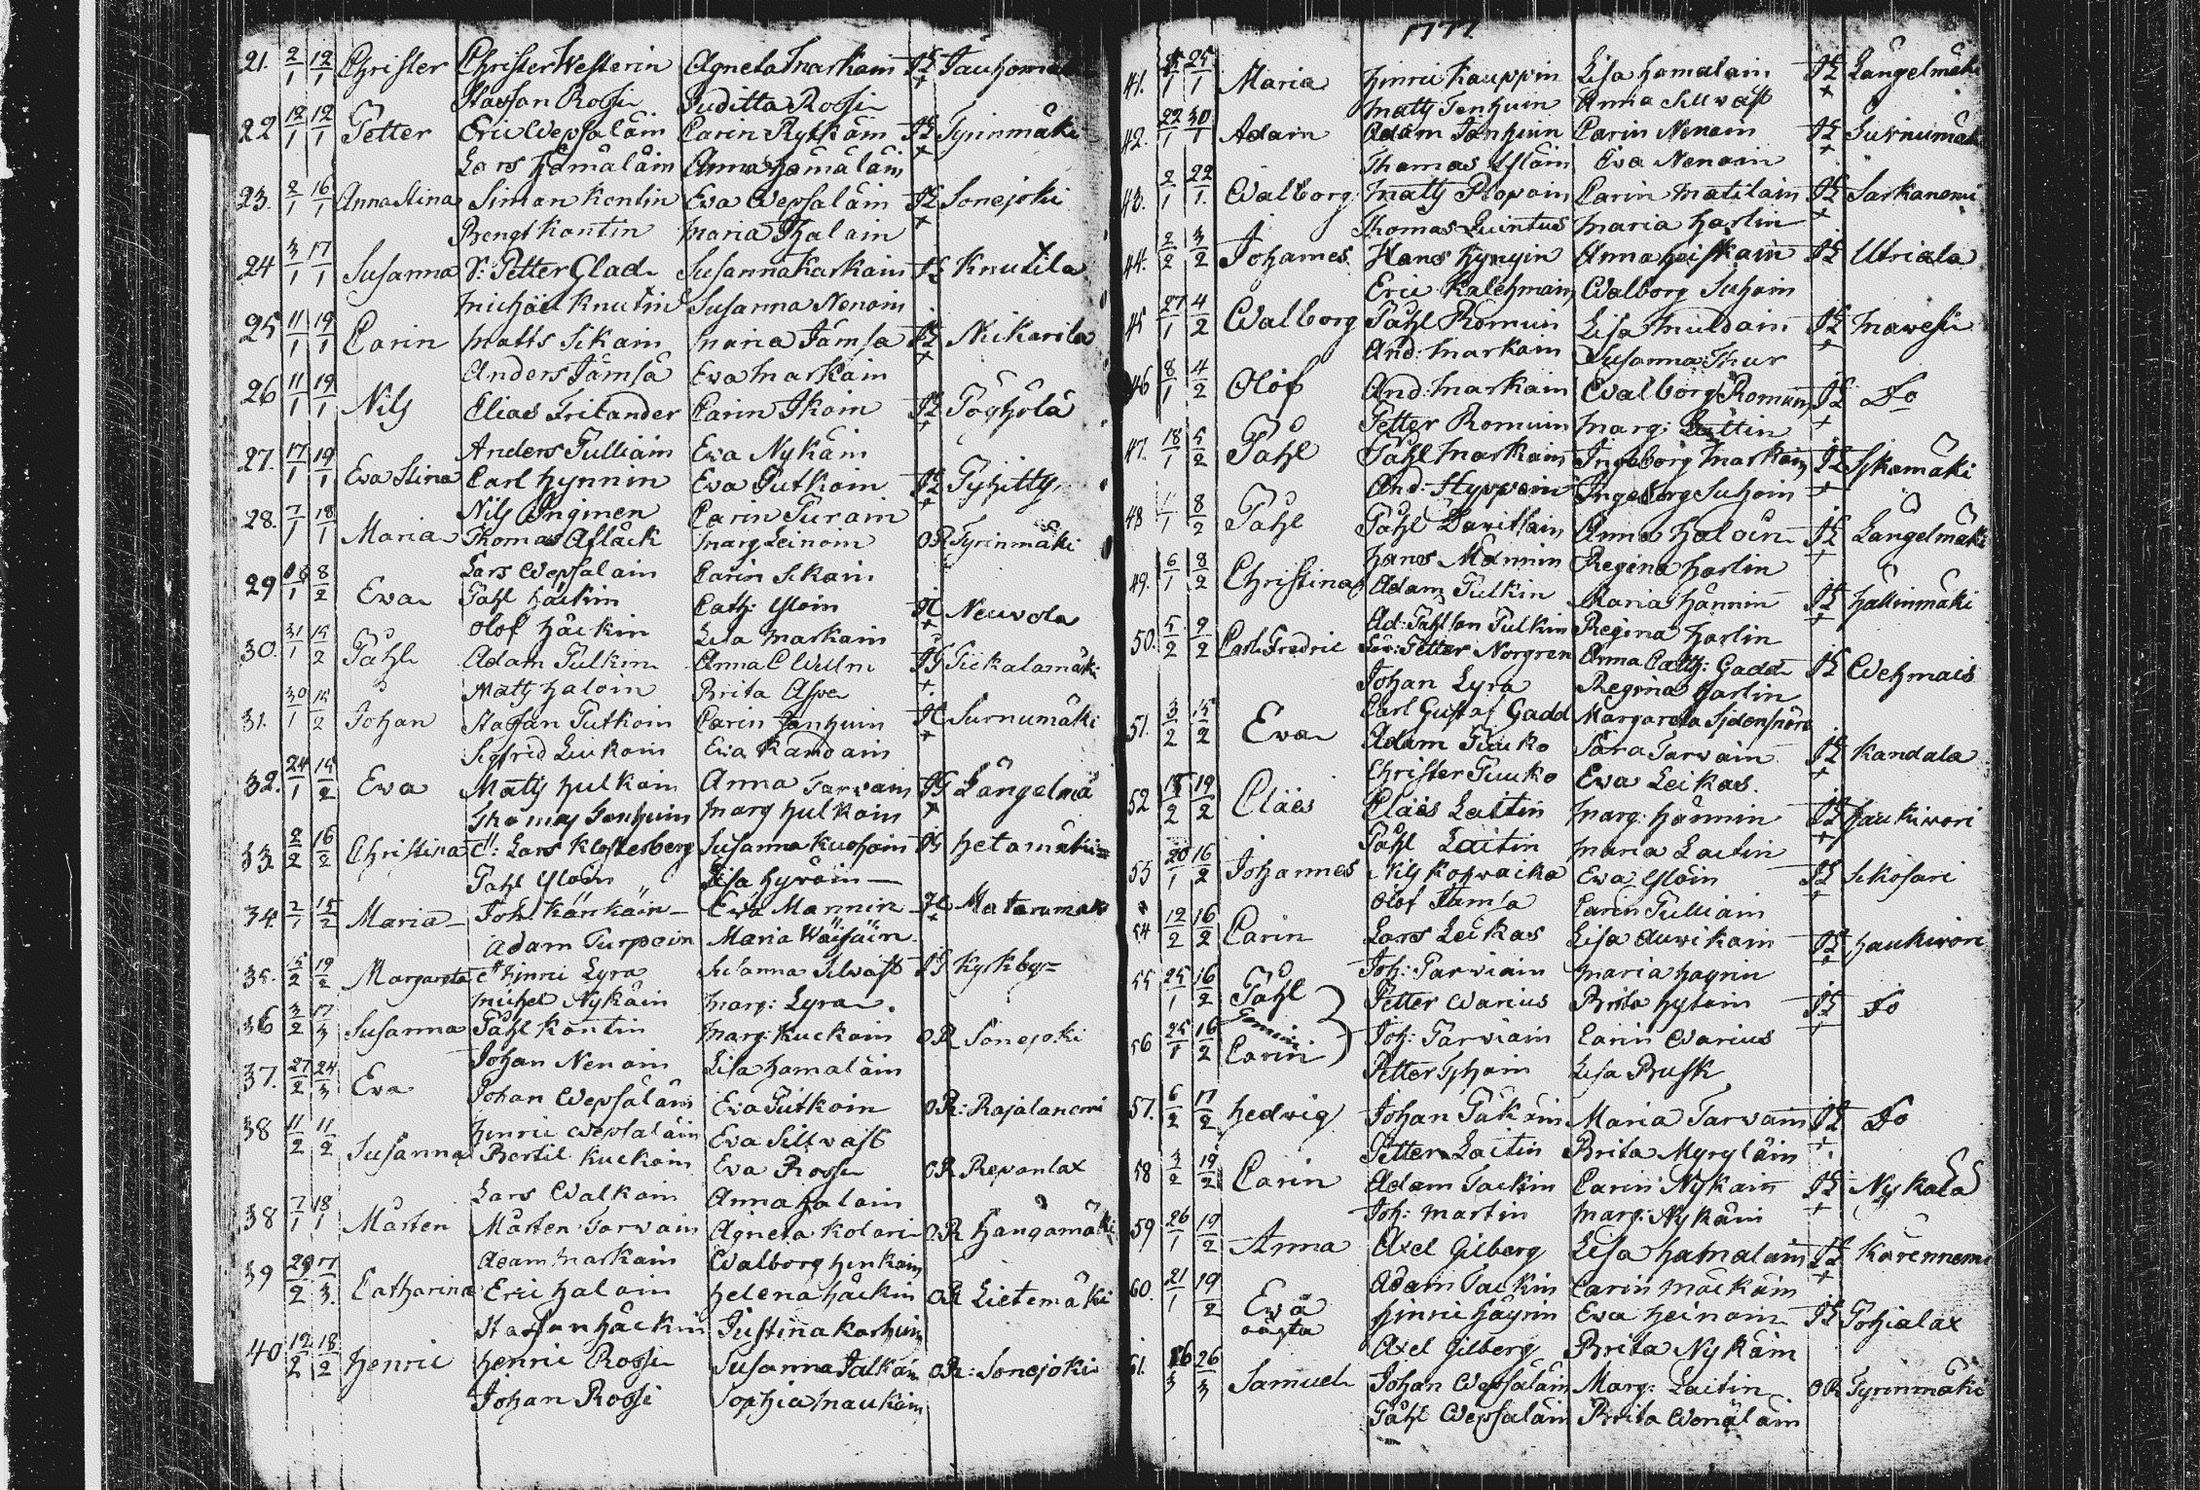 21. 2/1 12/1 Christer Christer Westerin Agneta Markain
Staffan Rossi Juditta Rossi
22 12/1 12/1 Petter Eric Wepsäläin Carin Rytkäin Pyrinmäki
Lars Hämäläin Anna Hämäläin
23. 2/1 16/1 Anna Stina Simon Kontin Eva Wepsäläin Sonejoki
Bengt Kontin Maria Thalain
24 3/1 17/1 Susanna S: Petter Glad Susanna Karkain Knutila
Michäel Knutin Susanna Nenoin
25 11/1 19/1 Carin Matts Ickain Maria Jämsä Nikarila
Anders Jämsä Ewa Markain
26 11/1 19/1 Nils Elias Fritander Carin Ikoin Pöyhölä
Anders Pulliain Eva Nykäin
27. 17/1 19/1 Eva Stina Carl Hynnin Eva Putkoin Pyhitty
Nils Carin Purain
28. 7/1 18/1 Maria Thomas Afläck Marg Leinoin OR Pyrinmäki
Lars Wepsalain Carin Ickain
29 8/2 Ewa Påhl Häckin Cath: Yloin Neuvola
Olof Häckin Lisa Markain
30. 31/1 15/2 Påhl Adam Pulkin Anna C Pickalamäki
Matts Haloin Brita
31. 30/1 15/2 Johan Staffan Putkoin Carin Janhuin Surnumäki
Sigfrid Luckoin Eva Kandain
32. 24/1 15/2 Ewa Matts Hulkain Anna Tarvain Längelmä
Thomas Tenhuin Marg Hulkoin
33 2/2 16/2 Christina C: Lars Klosterberg Susanna Kuohain Hetamäki
Påhl Yloin Lisa Hyväin
34. 2/1 15/2 Maria Joh: Kärkäin Ewa Mannin Mataramäki
Adam Turpoin Maria Wäisäin
35. 15/2 19/2 Margareta C Hinric Lyra Susanna Silwast Kyrkby
Michel Nykäin Marg: Lyra
36 3/2 17/3 Susanna Påhl Kontin Marg: Kuckain OR Sonejoki
Johan Nenoin Lisa Hamaläin
37. 27/2 24/3 Eva Johan Wepsäläin Eva Putkoin OR: Rajalanemi
Henric Wepsäläin Eva Sillvast
38 11/2 11/2 Susanna Bertil Kuckain Eva Rossi OR Reponlax
Lars Walkain Anna Halain
38 7/1 18/1 Mårten Mårten Tarvain Agneta Kolari OR Hangamäki
Adam Markain Walborg Henkain
39 29/2 17/3. Catharina Eric Halain Helena Häckin OR Lietemäki
Staffan Häckin Justina Karhuin
40 12/2 18/2 Henric Henric Rossi Susanna Jalkain OR: Sonejoki
Johan Rossi Sophia Maukain
1777
41. 25/1 Maria Hinric Kauppin Lisa Hamalain Längelmäki
Matts Tenhuin Anna Sillwast
42. 22/1 30/1 Adam Adam Janhuin Carin Nenoin Surnumäki
Thomas Eva Nenoin
43. 2/1 22/1. Walborg Matts Ropoin Carin Matilain Sarkanemi
Thomas Quintus Maria Harlin
44. 2/2 3/2 Johannes Hans Hynnin Anna Heiskain Utriala
Eric Kalehmain Walborg Suhoin
45 27/1 4/2 Walborg Påhl Romuin Lisa Muldain Mawesi
And: Markain Susanna Thur
46 8/1 4/2 Olof And: Markain Walborg Romuin Do
Petter Romuin Marg: Lattin
47. 18/1 5/2 Påhl Påhl Markain Ingeborg Markain Ickamäki
And: Hyvväin Ingeborg Suhoin
48 8/2 Påhl Påhl Davitsain Anna Haloin Längelmäki
Hans Männin Regina Harlin
49. 6/1 8/2 Christina Adam Pulkin Maria Hännin Hällinmäki
Ad: Påhlson Pulkin Regina Harlin
50. 5/2 9/2 Carl Fredric Petter Norgren Anna Cath: Gadd Wehmais
Johan Lyra Regina Harlin
Carl Gustaf Gadd Margareta
51. 3/2 15/2 Ewa Adam Puuko Sara Tarvain Kandala
Christer Puuko Eva Leikas.
52 18/2 19/2 Claes Claës Laitin Marg: Hännin Haukivori
Påhl Laitin Maria Laitin
53 20/1 16/2 Johannes Nils Eva Yloin Ickosari
Olof Jämsä Carin Pulliain
54 12/2 16/2 Carin Lars Leikas Lisa Auvikain Haukivori
Joh: Parviain Maria Hayrin
55 25/1 16/2 Påhl Petter Warius Brita Hytöin Do
Gemini
56 25/1 16/2 Carin Joh: Parviain Carin Warius
Petter Tyhain Lisa Rusk
57. 6/2 17/2 Hedwig Johan Päkäin Maria Tarvain Do
Petter Laitin Brita Myryläin
58 3/2 19/2 Carin Adam Tackin Carin Nykain Nykälä
Joh: Martin Marg: Nykäin
59 26/1 19/2 Anna Axel Gilberg Lisa Hamalain Karennemi
Adam Tackin Carin Mäckäin
60. 21/1 19/2 Ewa Hinric Häyrin Eva Heinoin Pohialax
oägta
Axel Gilberg Brita Nykäin
61. 16/3 26/3 Samuel Johan Wepsäläin Marg: Laitin OR Pyrinmäki
Påhl Wepsäläin Brita Wenäläin